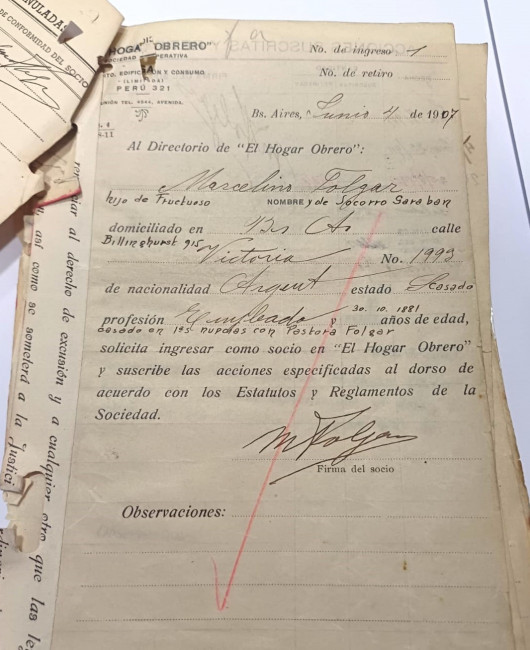 NULADAS
DE CONFORMIDAD DEL SOCIO
"HOGA "OBRERO"
SOCIEDAD COOPERATIVA
EDIFICACIÓN Y CONSUMO
(LIMITADA)
PERÚ 321
UNIÓN TEL. AVENIDA
No. de ingreso 1
No. de retiro
Bs. Aires, Junio 4 de 1907
Al Directorio de "El Hogar Obrero":
Marcelino Folgar
hijo de Fructuoso NOMBRE y de Socorro Saraban
domiciliado en Bs As calle
Billinghurst 915
Victoria No. 1993
de nacionalidad Argent estado Casado
profesión Empleado y 30.10.1881 años de edad,
casado en 1as nupcias con Pastora Folgar
solicita ingresar como socio en "El Hogar Obrero"
y suscribe las acciones especificadas al dorso de
acuerdo con los Estatutos y Reglamentos de la
Sociedad.
M Folgar
Firma del socio
Observaciones:
al derecho de excusión y a cualquier otro que las le
así como se someterá a la Justici